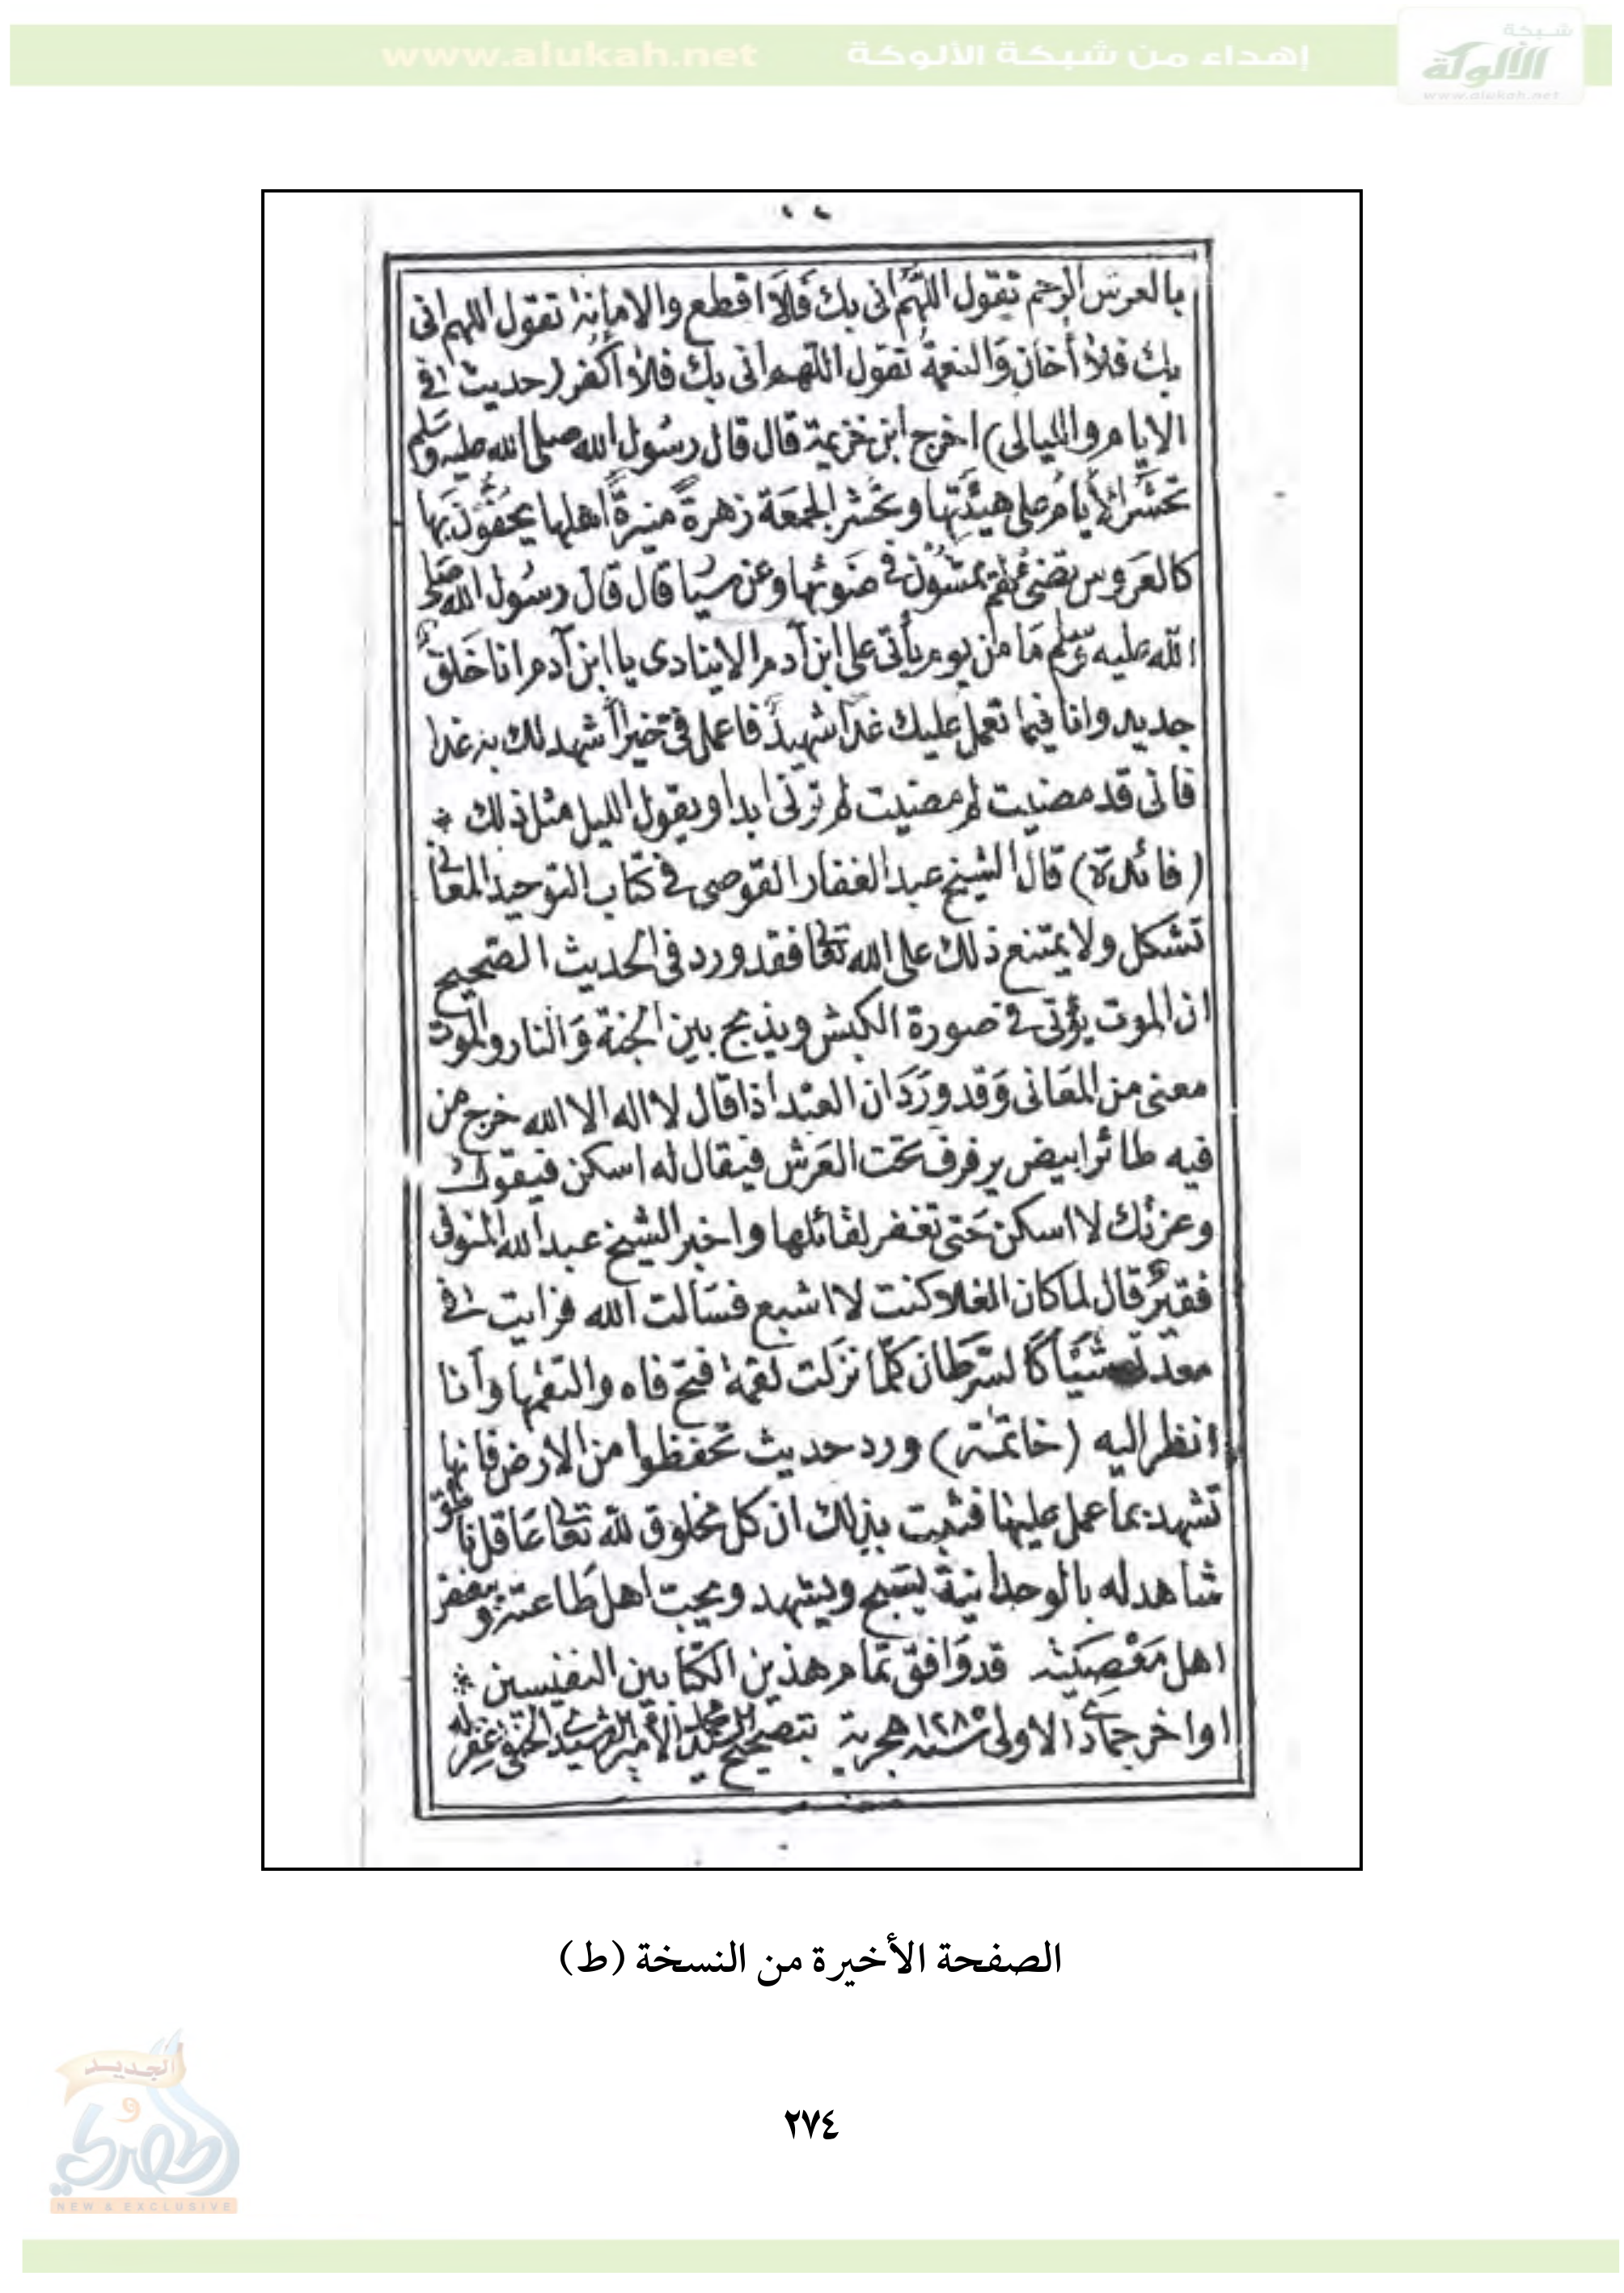 شبكة
الألوكة
www.alukah.net
إهداء من شبكة الألوكة www.alukah.net
بالعرش الرحم تقول اللهم انى بك فلا اقطع والامانة تقول اللهم انى
بك فلا أخان والنعمة تقول اللهم انى بك فلا أكفر (حديث في
الايام والليالى) اخرج ابن خزيمة قال قال رسول الله صلى الله عليه وسلم
تحشر الأيام على هيئتها وتحشر الجمعة زهرة منيرة اهلها يحفون بها
كالعروس تضئ لهم يمشون في ضوئها وعن قال قال رسول الله صلى
الله عليه وسلم ما من يوم يأتى على ابن آدم الا ينادى يا ابن آدم انا خلق
جديد وانا فيما تعمل عليك غدا شهيد فاعمل في خيرا أشهد لك به غدا
فانى قد مضيت لم مضيت لم ترنى ابدا ويقول الليل مثل ذلك *
(فائدة) قال الشيخ عبد الغفار القوصى في كتاب التوحيد المعانى
تشكل ولا يمتنع ذلك على الله تعالى فقد ورد في الحديث الصحيح
ان الموت يؤتى في صورة الكبش ويذبح بين الجنة والنار والموت
معنى من المعانى وقد ورد ان العبد اذا قال لا اله الا الله خرج من
فيه طائر ابيض يرفرف تحت العرش فيقال له اسكن فيقول
وعزتك لا اسكن حتى تغفر لقائلها واخبر الشيخ عبد الله المنوفى
فقير قال لما كان الغلا كنت لا اشبع فسألت الله فرايت في
شيأ كالسرطان كلما نزلت لقمة فتح فاه والتقمها وأنا
انظر اليه (خاتمة) ورد حديث تحفظوا من الارض فانها
تشهد بما عمل عليها فثبت بذلك ان كل مخلوق لله تعالى عاقل ناطق
شاهد له بالوحدانية يسبح ويشهد ويحب اهل طاعته ويبغض
اهل معصيته قد وافق تمام هذين الكتابين النفيسين *
اواخر جمادى الاولى سنة ١٢٨٥ هجرية بتصحيح السيد محمد الحنفى غفر له
الصفحة الأخيرة من النسخة (ط)
٢٧٤
الجديد
و
الحصري
NEW & EXCLUSIVE